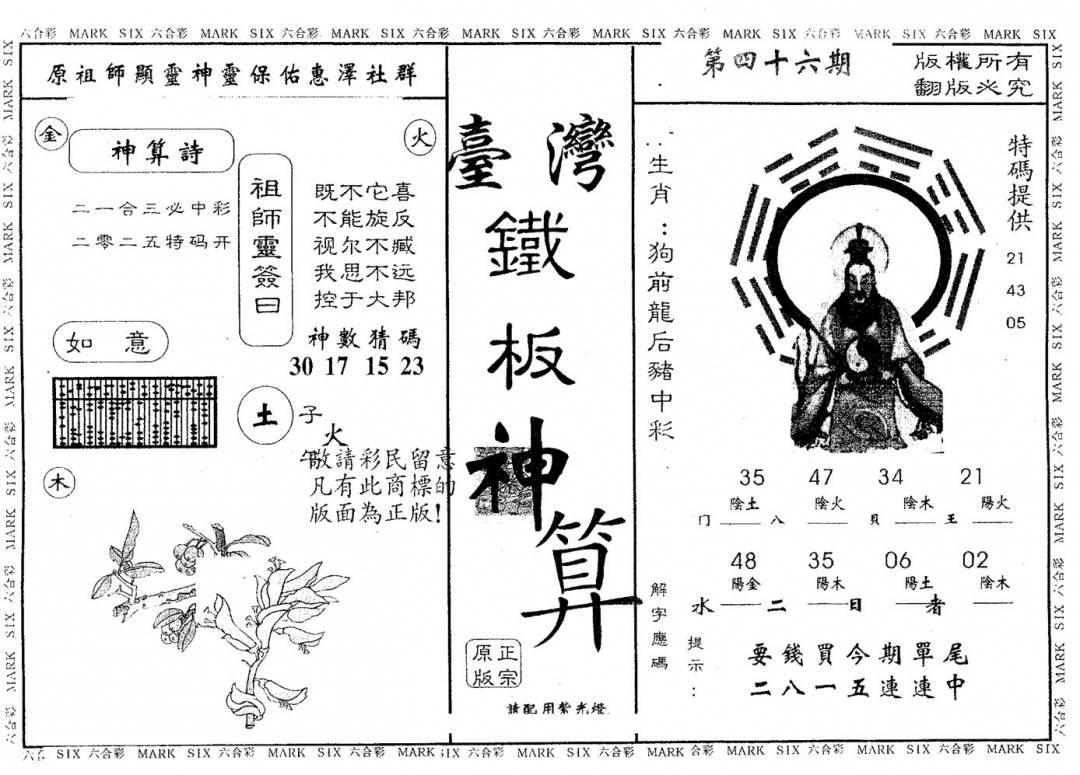 六合彩 MARK SIX 六合彩 MARK SIX 六合彩 MARK SIX 六合彩 MARK SIX 六合彩 MARK SIX 六合彩 MARK SIX 六合彩 MARK SIX 六合彩 MARK SIX
原祖師顯靈神靈保佑惠澤社群
金
火
神算詩
二一合三必中彩
二零二五特码开
祖師靈簽曰
既不它喜
不能旋反
视尔不臧
我思不远
控于大邦
神數猜碼
30 17 15 23
如 意
土
子
火
午
敬請彩民留意
凡有此商標的
版面為正版!
木
臺灣
鐵
板
神
算
正宗
原版
請配用紫光燈
第四十六期
版權所有
翻版必究
生肖:狗前龍后豬中彩
特碼提供
21
43
05
35 47 34 21
陰土 陰火 陰木 陽火
门 八 貝 王
48 35 06 02
陽金 陽木 陽土 陰木
水 二 日 者
解字應碼
提示:
要錢買今期單尾
二八一五連連中
六合 SIX 六合彩 MARK SIX 六合彩 MARK SIX 六合彩 MARK SIX 六合彩 MARK SIX 六合彩 MARK SIX 六合彩 MARK SIX 六合彩 MARK SIX 六合彩 MARK SIX